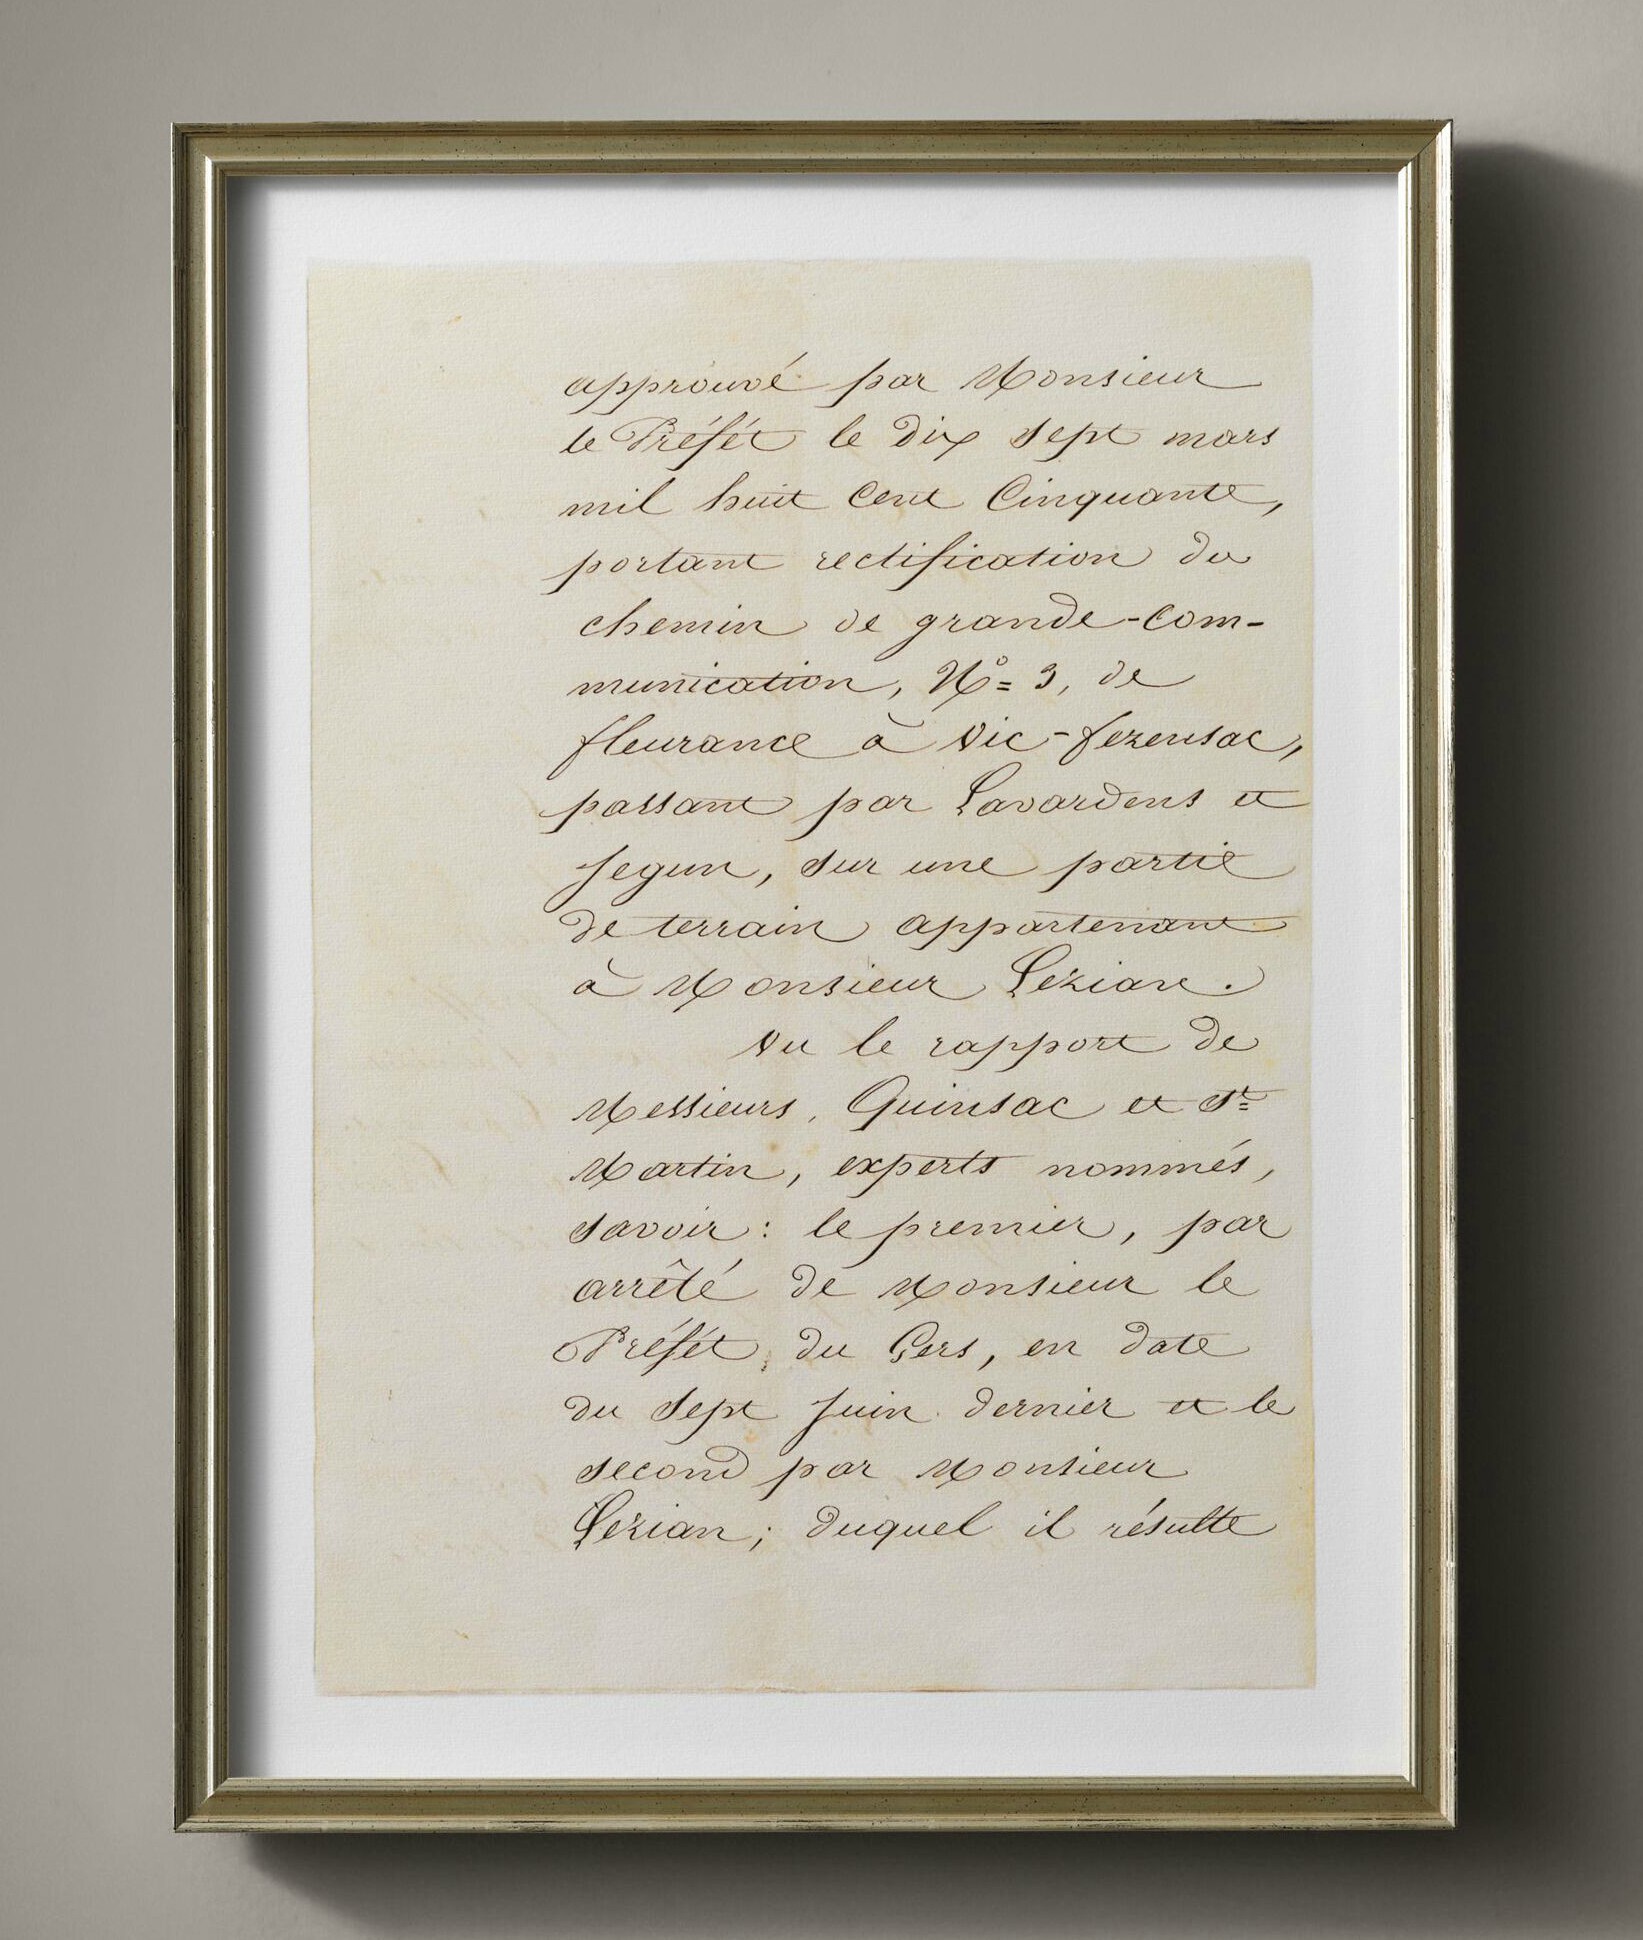 approuvé par Monsieur
le Préfét le Dix Sept mars
mil huit Cent Cinquante,
portant rectification du
chemin de grande-Com-
munication, N° 3, de
fleurance à Vic-fezensac,
passant par Lavardens et
Jegun, sur une partie
de terrain appartenant
à Monsieur Lezian.
Vu le rapport de
Messieurs, Quinsac et St
Martin, experts nommés,
savoir : le premier, par
arrêté de Monsieur le
Préfét du Gers, en date
du Sept Juin dernier et le
second par Monsieur
Lezian ; duquel il résulte